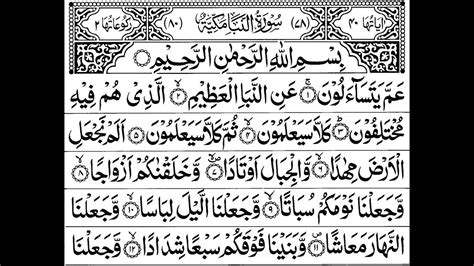 اٰیَاتُهَا ۴۰ (۷۸) سُوْرَةُ النَّبَاِ مَكِّیَّةٌ (۸۰) رُكُوْعَاتُهَا ۲
بِسْمِ اللّٰهِ الرَّحْمٰنِ الرَّحِیْمِ
عَمَّ یَتَسَآءَلُوْنَ ۝۱ عَنِ النَّبَاِ الْعَظِیْمِ ۝۲ الَّذِیْ هُمْ فِیْهِ
مُخْتَلِفُوْنَ ۝۳ كَلَّا سَیَعْلَمُوْنَ ۝۴ ثُمَّ كَلَّا سَیَعْلَمُوْنَ ۝۵ اَلَمْ نَجْعَلِ
الْاَرْضَ مِهٰدًا ۝۶ وَّالْجِبَالَ اَوْتَادًا ۝۷ وَّخَلَقْنٰكُمْ اَزْوَاجًا ۝۸
وَّجَعَلْنَا نَوْمَكُمْ سُبَاتًا ۝۹ وَّجَعَلْنَا الَّیْلَ لِبَاسًا ۝۱۰ وَّجَعَلْنَا
النَّهَارَ مَعَاشًا ۝۱۱ وَّبَنَیْنَا فَوْقَكُمْ سَبْعًا شِدَادًا ۝۱۲ وَّجَعَلْنَا